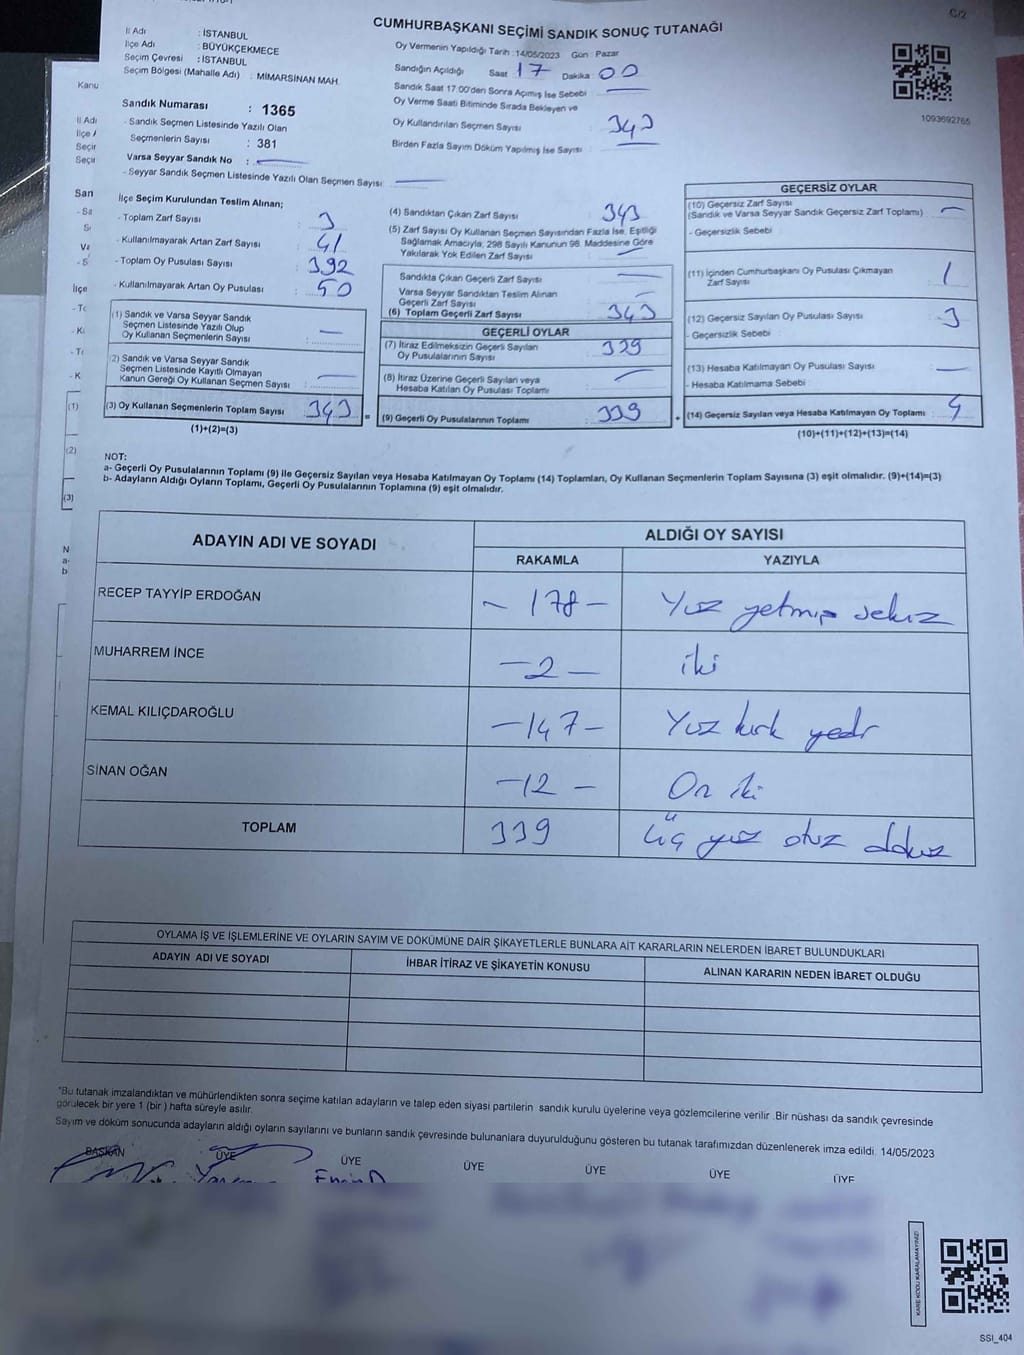 C/2
CUMHURBAŞKANI SEÇİMİ SANDIK SONUÇ TUTANAĞI
İl Adı : İSTANBUL
İlçe Adı : BÜYÜKÇEKMECE
Seçim Çevresi : İSTANBUL
Seçim Bölgesi (Mahalle Adı) : MİMARSİNAN MAH.
Sandık Numarası : 1365
- Sandık Seçmen Listesinde Yazılı Olan
Seçmenlerin Sayısı : 381
Varsa Seyyar Sandık No :
- Seyyar Sandık Seçmen Listesinde Yazılı Olan Seçmen Sayısı
Oy Vermenin Yapıldığı Tarih : 14/05/2023 Gün : Pazar
Sandığın Açıldığı Saat 17 Dakika 00
Sandık Saat 17:00'den Sonra Açımış İse Sebebi
Oy Verme Saati Bitiminde Sırada Bekleyen ve
Oy Kullandırılan Seçmen Sayısı : 343
Birden Fazla Sayım Döküm Yapılmış İse Sayısı :
1093692765
İlçe Seçim Kurulundan Teslim Alınan;
- Toplam Zarf Sayısı : 3
- Kullanılmayarak Artan Zarf Sayısı : 41
- Toplam Oy Pusulası Sayısı : 392
- Kullanılmayarak Artan Oy Pusulası : 50
(1) Sandık ve Varsa Seyyar Sandık
Seçmen Listesinde Yazılı Olup
Oy Kullanan Seçmenlerin Sayısı
(2) Sandık ve Varsa Seyyar Sandık
Seçmen Listesinde Kayıtlı Olmayan
Kanun Gereği Oy Kullanan Seçmen Sayısı
(3) Oy Kullanan Seçmenlerin Toplam Sayısı : 343 =
(1)+(2)=(3)
(4) Sandıktan Çıkan Zarf Sayısı 343
(5) Zarf Sayısı Oy Kullanan Seçmen Sayısından Fazla İse, Eşitliği
Sağlamak Amacıyla, 298 Sayılı Kanunun 98. Maddesine Göre
Yakılarak Yok Edilen Zarf Sayısı
Sandıkta Çıkan Geçerli Zarf Sayısı
Varsa Seyyar Sandıktan Teslim Alınan
Geçerli Zarf Sayısı
(6) Toplam Geçerli Zarf Sayısı : 343
GEÇERLİ OYLAR
(7) İtiraz Edilmeksizin Geçerli Sayılan
Oy Pusulalarının Sayısı : 329
(8) İtiraz Üzerine Geçerli Sayılan veya
Hesaba Katılan Oy Pusulası Toplamı
(9) Geçerli Oy Pusulalarının Toplamı : 339 +
GEÇERSİZ OYLAR
(10) Geçersiz Zarf Sayısı
(Sandık ve Varsa Seyyar Sandık Geçersiz Zarf Toplamı)
- Geçersizlik Sebebi
(11) İçinden Cumhurbaşkanı Oy Pusulası Çıkmayan
Zarf Sayısı 1
(12) Geçersiz Sayılan Oy Pusulası Sayısı 3
- Geçersizlik Sebebi
(13) Hesaba Katılmayan Oy Pusulası Sayısı
- Hesaba Katılmama Sebebi
(14) Geçersiz Sayılan veya Hesaba Katılmayan Oy Toplamı : 4
(10)+(11)+(12)+(13)=(14)
NOT:
a- Geçerli Oy Pusulalarının Toplamı (9) ile Geçersiz Sayılan veya Hesaba Katılmayan Oy Toplamı (14) Toplamları, Oy Kullanan Seçmenlerin Toplam Sayısına (3) eşit olmalıdır. (9)+(14)=(3)
b- Adayların Aldığı Oyların Toplamı, Geçerli Oy Pusulalarının Toplamına (9) eşit olmalıdır.
ADAYIN ADI VE SOYADI ALDIĞI OY SAYISI
RAKAMLA YAZIYLA
RECEP TAYYİP ERDOĞAN - 178 - Yüz yetmiş sekiz
MUHARREM İNCE - 2 - iki
KEMAL KILIÇDAROĞLU - 147 - Yüz kırk yedi
SİNAN OĞAN - 12 - On iki
TOPLAM 339 üç yüz otuz dokuz
OYLAMA İŞ VE İŞLEMLERİNE VE OYLARIN SAYIM VE DÖKÜMÜNE DAİR ŞİKAYETLERLE BUNLARA AİT KARARLARIN NELERDEN İBARET BULUNDUKLARI
ADAYIN ADI VE SOYADI İHBAR İTİRAZ VE ŞİKAYETİN KONUSU ALINAN KARARIN NEDEN İBARET OLDUĞU
*Bu tutanak imzalandıktan ve mühürlendikten sonra seçime katılan adayların ve talep eden siyasi partilerin sandık kurulu üyelerine veya gözlemcilerine verilir. Bir nüshası da sandık çevresinde
görülecek bir yere 1 (bir) hafta süreyle asılır.
Sayım ve döküm sonucunda adayların aldığı oyların sayılarını ve bunların sandık çevresinde bulunanlara duyurulduğunu gösteren bu tutanak tarafımızdan düzenlenerek imza edildi. 14/05/2023
BAŞKAN ÜYE ÜYE ÜYE ÜYE ÜYE ÜYE
KARE KODU KARALAMAYINIZ!
SSI_404